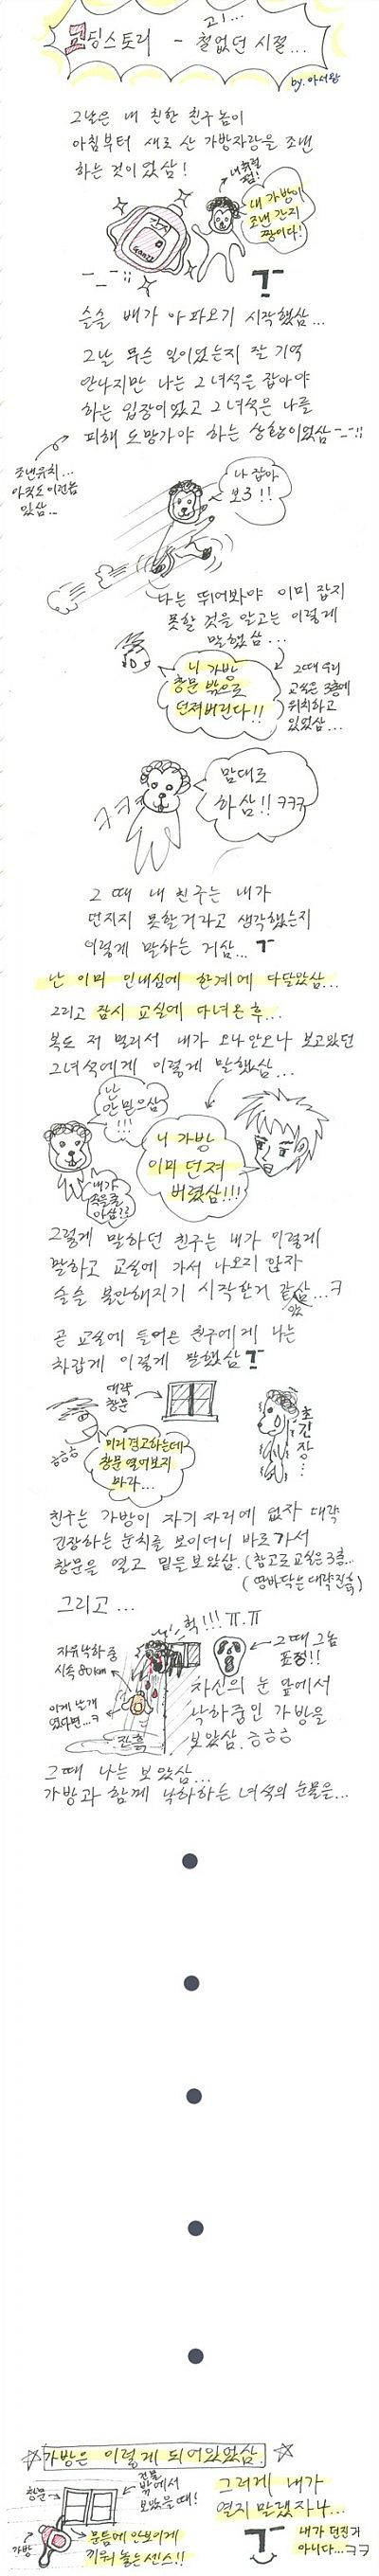 고!...
딩스토리 - 철없던 시절...
by. 아서왕
그날은 내 친한 친구 놈이
아침부터 새로 산 가방자랑을 조낸
하는 것이었삼!
내 가방이
조낸 간지
짱이다!
슬슬 배가 아파오기 시작했삼...
그날 무슨 일이었는지 잘 기억
안나지만 나는 그녀석은 잡아야
하는 입장이었고 그녀석은 나를
피해 도망가야 하는 상황이었삼-_-;;
조낸유치...
아직도 이런놈
있삼...
나 잡아
보3!!
나는 뛰어봐야 이미 잡지
못할 것을 알고는 이렇게
말했삼...
니 가방
창문 밖으로
던져버린다!!
그때 우리
교실은 3층에
위치하고
있었삼...
ㅋㅋㅋ
맘대로
하삼!! ㅋㅋㅋ
그 때 내 친구는 내가
던지지 못할거라고 생각했는지
이렇게 말하는 거삼...
난 이미 인내심에 한계에 다달았삼...
그리고 잠시 교실에 다녀온 후...
복도 저 멀리서 내가 오나안오나 보고있던
그녀석에게 이렇게 말했삼...
난
안 믿으삼
!!!
니 가방
이미 던져
버렸삼!!!
내가
속을줄
아삼??
그렇게 말하던 친구는 내가 이렇게
말하고 교실에 가서 나오지 않자
슬슬 불안해지기 시작한거 같았삼...ㅋ
곧 교실에 들어온 친구에게 나는
차갑게 이렇게 말했삼
대략
창문
ㅎㅎㅎ
미리 경고하는데
창문 열어보지
마라...
초긴장...
친구는 가방이 자기 자리에 없자 대략
긴장하는 눈치를 보이더니 바로 가서
창문을 열고 밑을 보았삼. (참고로 교실은 3층...
(땅바닥은 대략진흙)
그리고...
헉!!! ㅠ.ㅠ
자유낙하 중
시속 80km
그때 그놈
표정!!
이게 날개
였다면...ㅋ
진흙
자신의 눈 앞에서
낙하중인 가방을
보았삼. ㅎㅎㅎ
그때 나는 보았삼...
가방과 함께 낙하하는 녀석의 눈물을...
☆가방은 이렇게 되어있었삼.☆
창문
건물
밖에서
보았을 때!
가방
문틈에 안보이게
끼워 놓는 센스!!
그러게 내가
열지 말랬자나...
내가 던진거
아니다...ㅋㅋ